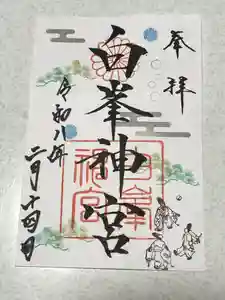 奉拝
白峯神宮
令和八年
二月十四日
白峯神宮